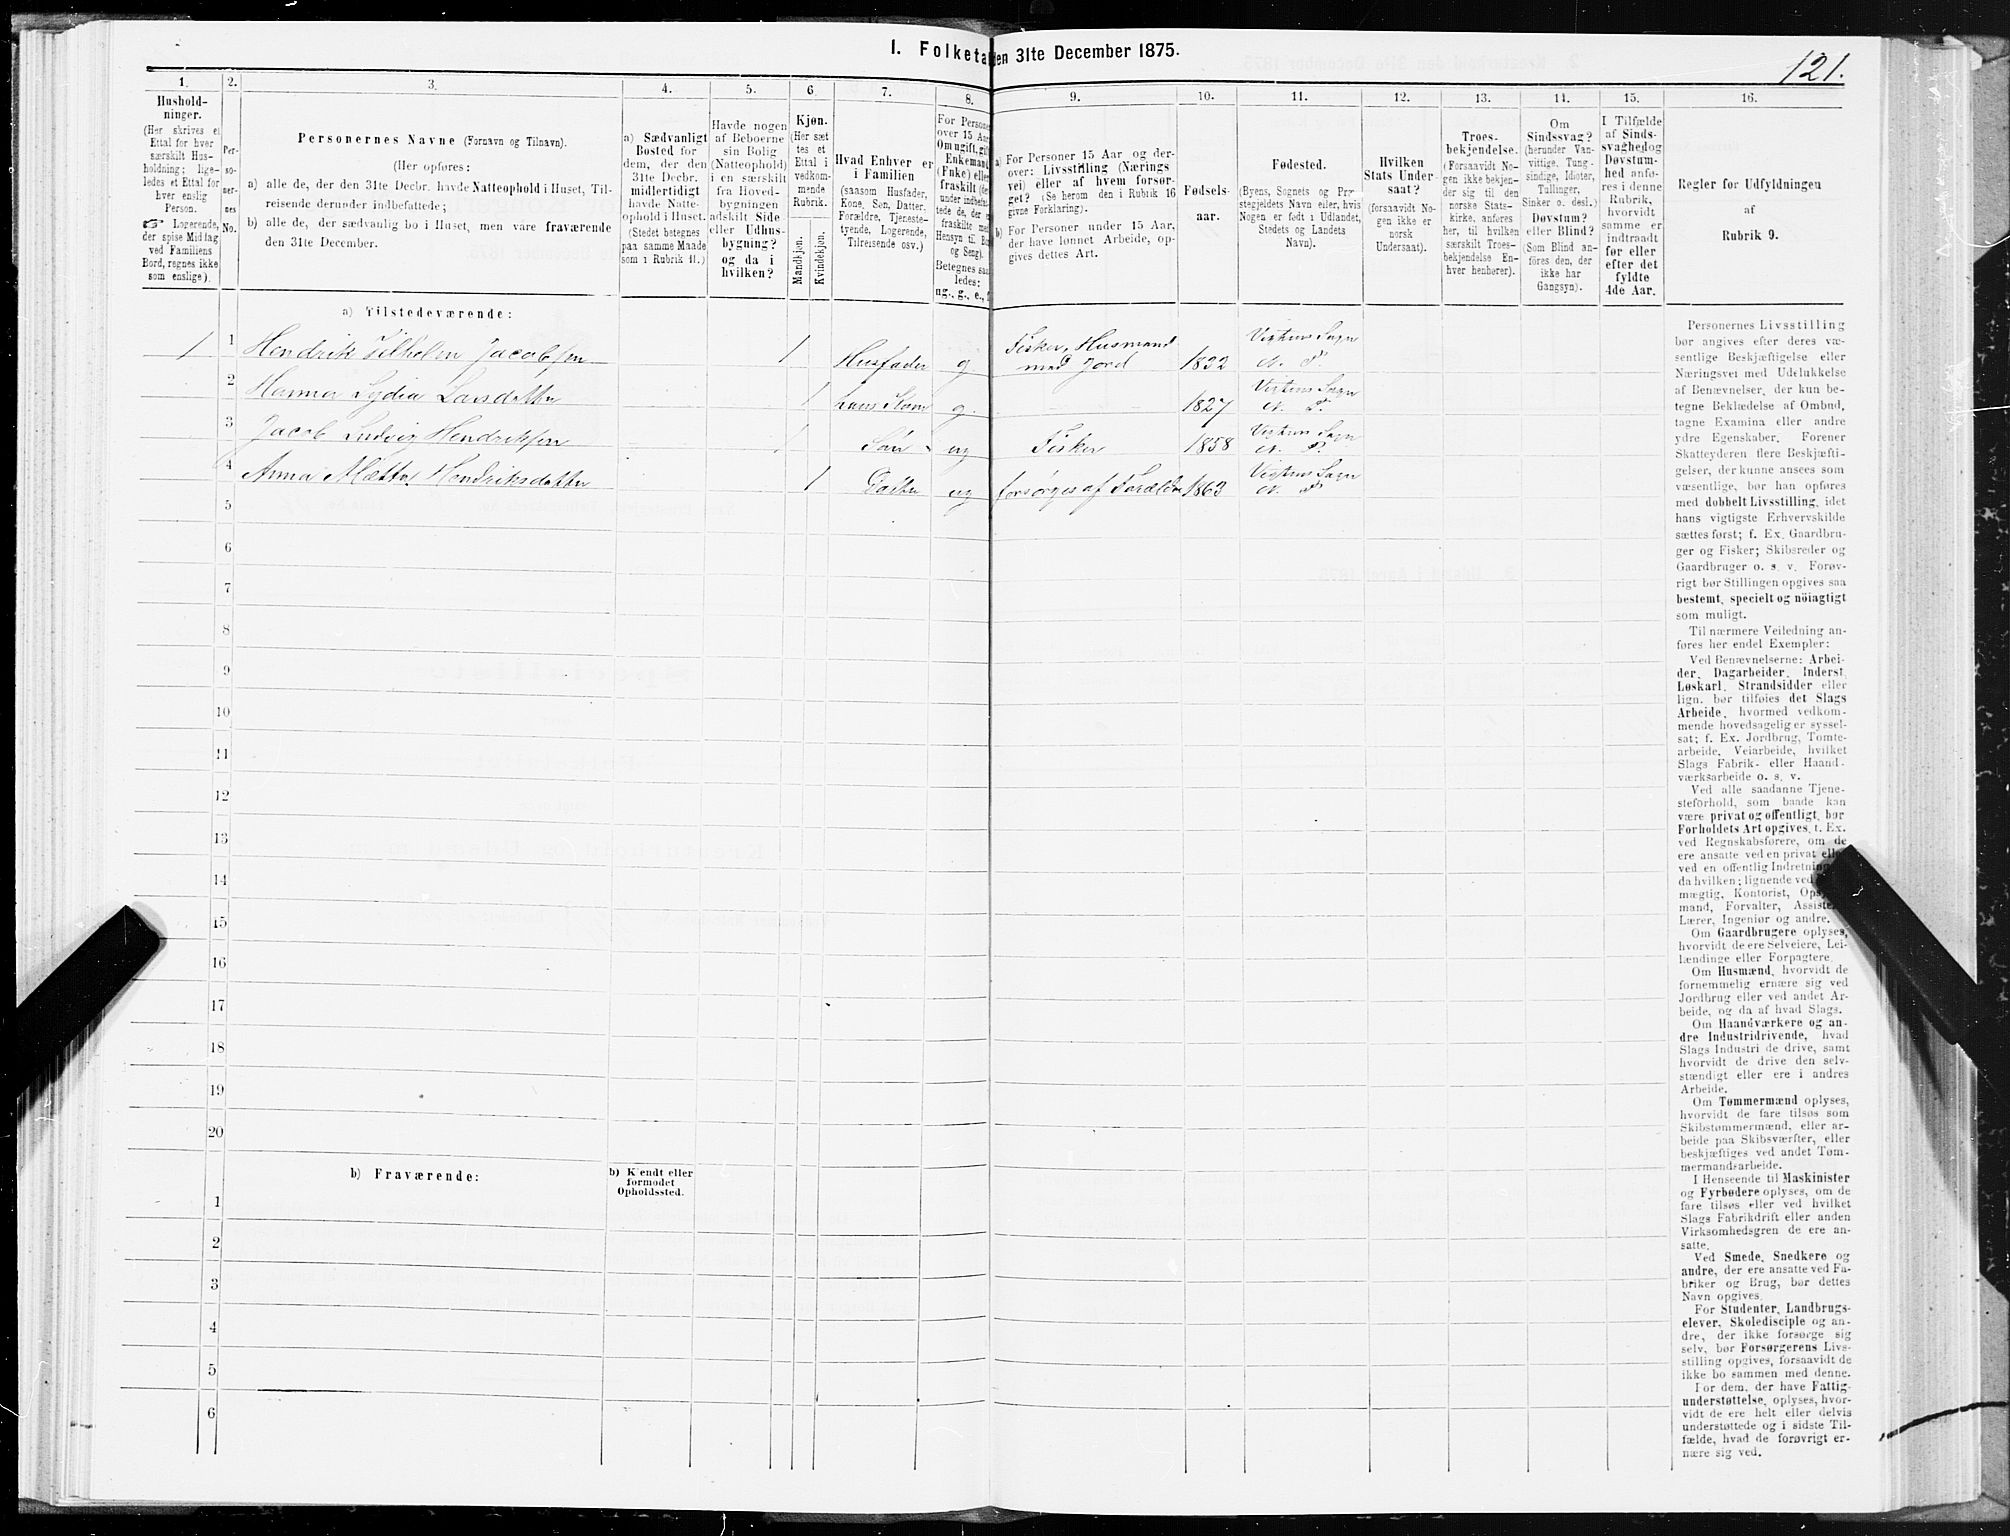 I. Folketa en 31te December 1875.
121.
1.
Hushold-
ninger.
(Her skrives et
Ettal for hver
særskilt Hus-
holdning; lige-
ledes et Ettal for
hver enslig
Person.
☞ Logerende,
der spise Middag
ved Familiens
Bord, regnes ikke
som enslige).
2.
Per-
so-
ner-
nes
No.
3.
Personernes Navne (Fornavn og Tilnavn).
(Her opføres:
a) alle de, der den 31te Decbr. havde Natteophold i Huset, Til-
reisende derunder indbefattede;
b) alle de, der sædvanlig bo i Huset, men vare fraværende
den 31te December.
4.
a) Sædvanligt
Bosted for
dem, der den
31te Decbr.
midlertidigt
havde Natte-
ophold i Huset.
(Stedet betegnes
paa samme Maade
som i Rubrik 11.)
5.
Havde nogen
af Beboerne
sin Bolig
(Natteophold)
i en særskilt
fra Hoved-
bygningen
adskilt Side
eller Udhus-
bygning?
og da i
hvilken?
6.
Kjøn.
(Her sæt
tes et
Ettal i
vedkom-
mende
Rubrik.
Mandkjøn.
Kvindekjøn.
7.
Hvad Enhver er
i Familien
(saasom Husfader,
Kone, Søn, Datter,
Forældre, Tjeneste-
tyende, Logerende,
Tilreisende osv.)
8.
For Persone
over 15 Aa
Om ugift, gif
Enkemand
(Enke) elle
fraskilt (de
under indbefat
tede de, der
fraskilte me
Hensyn til Bo
og Seng).
Betegnes saa
ledes:
ug., g., e.,
9.
a) For Personer 15 Aar og der-
over: Livsstilling (Nærings
vei) eller af hvem forsør-
get? (Se herom den i Rubrik 16
givne Forklaring).
b) For Personer under 15 Aar,
der have lønnet Arbeide, op-
gives dettes Art.
10.
Fødsels-
aar.
11.
Fødested.
(Byens, Sognets og Præ
stegjeldets Navn eller, hvis
Nogen er født i Udlandet,
Stedets og Landets
Navn).
12.
Hvilken
Stats Under-
saat?
(forsaavidt No-
gen ikke er
norsk
Undersaat).
13.
Troes-
bekjendelse.
(Forsaavidt No-
gen ikke bekjen-
der sig til den
norske Stats-
kirke, anføres
her, til hvilken
særskilt Troes-
bekjendelse En-
hver henhører).
14.
Om
Sindssvag?
(herunder Van-
vittige, Tung-
sindige, Idioter,
Tullinger,
Sinker o. desl.)
Døvstum?
eller Blind?
(Som Blind an-
føres den, der
ikke har
Gangsyn).
15.
I Tilfælde
af Sinds-
svaghed og
Døvstum-
hed anfø-
res i denne
Rubrik,
hvorvidt
samme er
indtraadt
før eller
efter det
fyldte
4de Aar.
16.
Regler for Udfyldningen
af
Rubrik 9.
a) Tilstedeværende:
1 1 Hendrik Jacobsen 1 Husfader g Fisker, Husmand med Jord 1832
2 Hanna Lydia Larsdatter 1 hans Kone g. 1827
3 Jacob Ludvig Hendriksen 1 Søn ug Fisker 1858
4 Anna Mætte Hendriksdatter 1 Datter ug forsørges af Forældre 1863
5
6
7
8
9
10
11
12
13
14
15
16
17
18
19
20
b) Fraværende:
b) Kjendt eller
formodet
Opholdssted.
1
2
3
4
5
6
Personernes Livsstilling
bør angives efter deres væ-
sentlige Beskjæftigelse eller
Næringsvei med Udelukkelse
af Benævnelser, der kun be-
tegne Beklædelse af Ombud,
tagne Examina eller andre
ydre Egenskaber. Forener
Skatteyderen flere Beskjæfti-
gelser, der kunne ansees som
væsentlige, bør han opføres
med dobbelt Livsstilling, idet
hans vigtigste Erhvervskilde
sættes først; f. Ex. Gaardbru-
ger og Fisker; Skibsreder og
Gaardbruger o. s. v. Forøv-
rigt bør Stillingen opgives saa
bestemt, specielt og nöiagtigt
som muligt.
Til nærmere Veiledning an-
føres her endel Exempler:
Ved Benævnelserne: Arbei-
der, Dagarbeider, Inderst,
Løskarl, Strandsidder eller
lign. bør tilføies det Slags
Arbeide, hvormed vedkom-
mende hovedsagelig er syssel-
sat; f. Ex. Jordbrug, Tomte-
arbeide, Veiarbeide, hvilket
Slags Fabrik- eller Haand-
værksarbeide o. s. v.
Ved alle saadanne Tjene-
steforhold, som baade kan
være privat og offentligt, bør
Forholdets Art opgives, f. Ex.
ved Regnskabsførere, om de
ere ansatte ved en privat eller
ved en offentlig Indretning
da hvilken; lignende ved
mægtig, Kontorist, Ops
mand, Forvalter, Assiste
Lærer, Ingeniør og andre.
Om Gaardbrugere oplyses,
hvorvidt de ere Selveiere, Lei-
lændinge eller Forpagtere.
Om Husmænd, hvorvidt de
fornemmelig ernære sig ved
Jordbrug eller ved andet Ar-
beide, og da af hvad Slags.
Om Haandværkere og an-
dre Industridrivende, hvad
Slags Industri de drive, samt
hvorvidt de drive den selv-
stændigt eller ere i andres
Arbeide.
Om Tømmermænd oplyses,
hvorvidt de fare tilsøs som
Skibstømmermænd, eller ar-
beide paa Skibsværfter, eller
beskjæftiges ved andet Tøm-
mermandsarbeide.
I Henseende til Maskinister
og Fyrbødere oplyses, om de
fare tilsøs eller ved hvilket
Slags Fabrikdrift eller anden
Virksomhedsgren de ere an-
satte.
Ved Smede, Snedkere og
andre, der ere ansatte ved Fa-
briker og Brug, bør dettes
Navn opgives.
For Studenter, Landbrugs-
elever, Skoledisciple og an-
dre, der ikke forsørge sig
selv, bør Forsørgerens Livs-
stilling opgives, forsaavidt de
ikke bo sammen med denne.
For dem, der have Fattig-
understøttelse, oplyses, hvor-
vidt de ere helt eller delvis
understøttede og i sidste Til-
fælde, hvad de forøvrigt er-
nære sig ved.